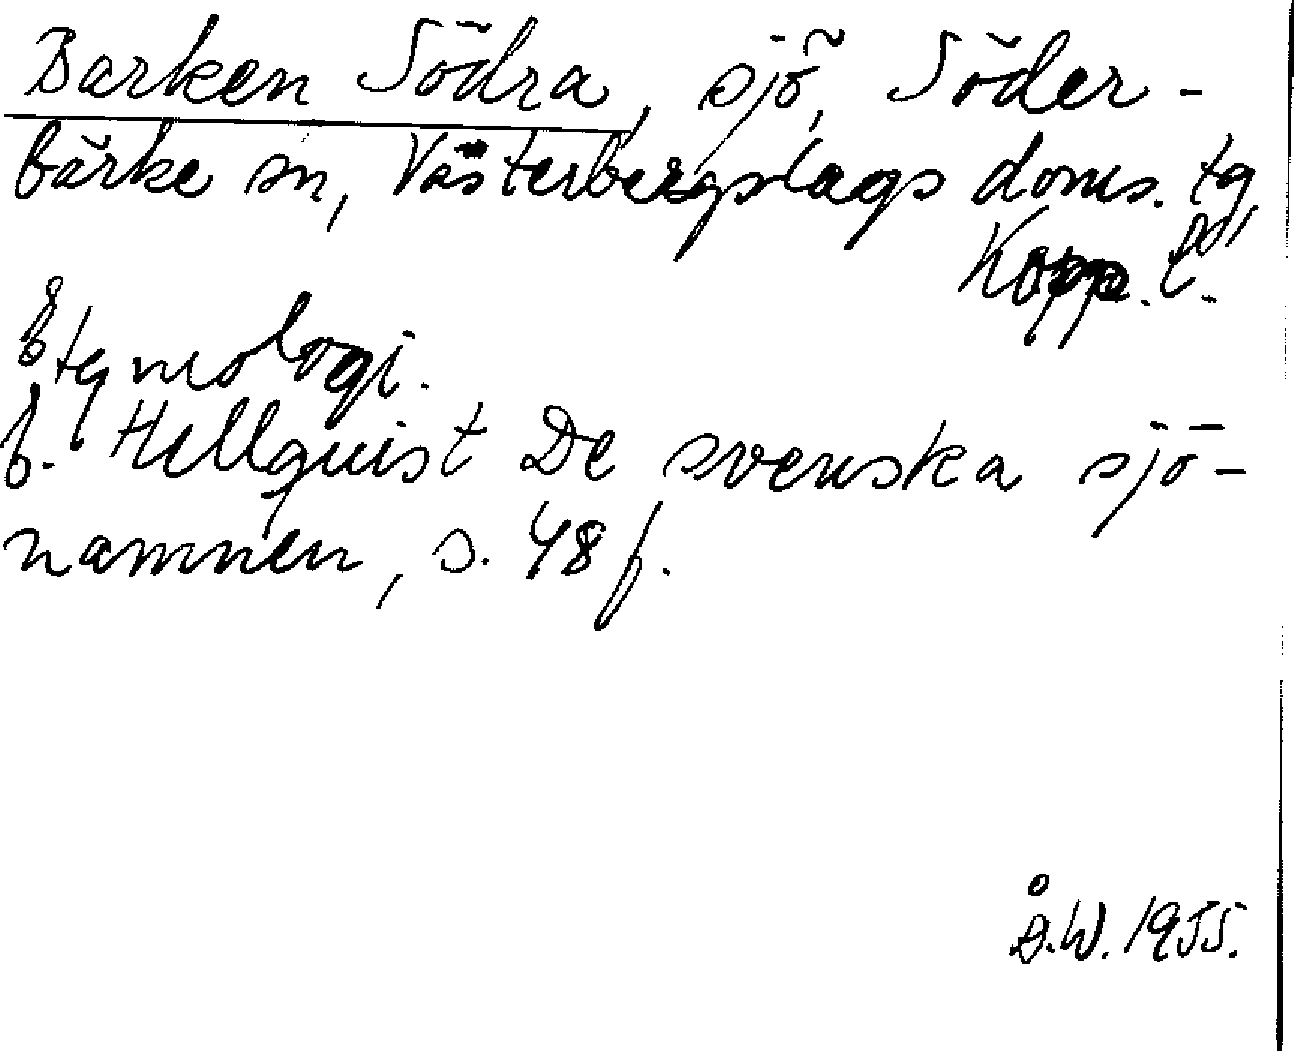 Barken Södra, sjö, Söder-
bärke sn, Västerbergslags doms. tg,
Kopp. l.
Etymologi.
E. Hellquist De svenska sjö-
namnen, s. 48 f.
Å.W. 1955.